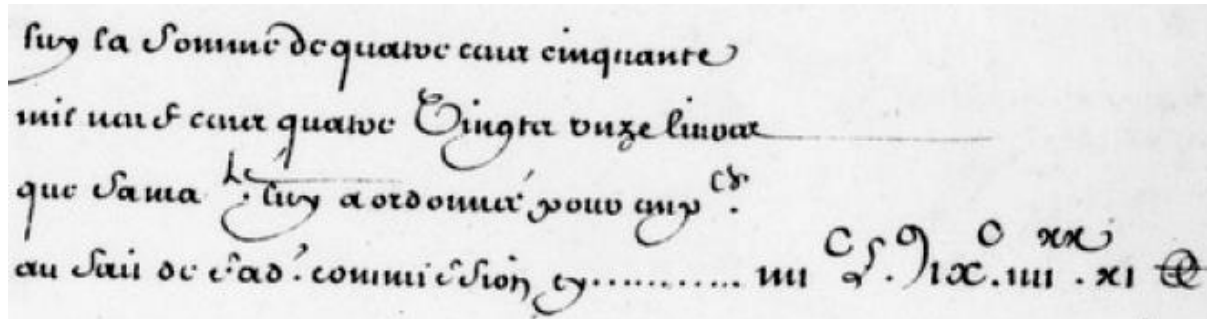 luy la Somme de quatre cens cinquante
mil neuf cens quatre Vingtz unze livres
que Sa ma.té luy a ordonné pour emp.er
au faict de lad.' commission cy........... iiii C L. M ix C. iiii xx . xi